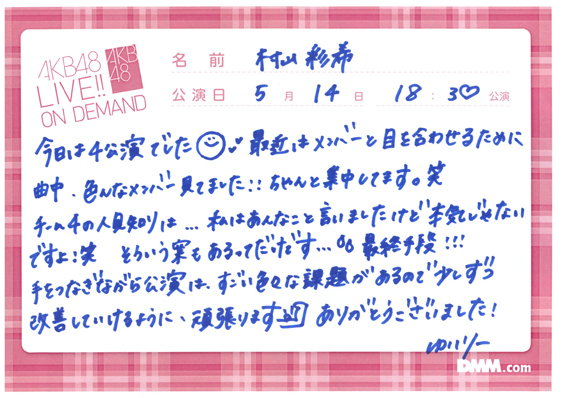 AKB48
LIVE!!
ON DEMAND
AKB
48
名前 村山彩希
公演日 5月14日 18:30公演
今日は4公演でした 最近はメンバーと目を合わせるために
曲中、色んなメンバー見てました!!ちゃんと集中してます。笑
チーム4の人見知りは...私はあんなこと言いましたけど本気じゃない
ですよ!笑 そういう案もあるってだけです... 最終手段!!!
手をつなぎながら公演は、すごい色々な課題があるので少しずつ
改善していけるように、頑張ります ありがとうございました!
ゆいりー
DMM.com